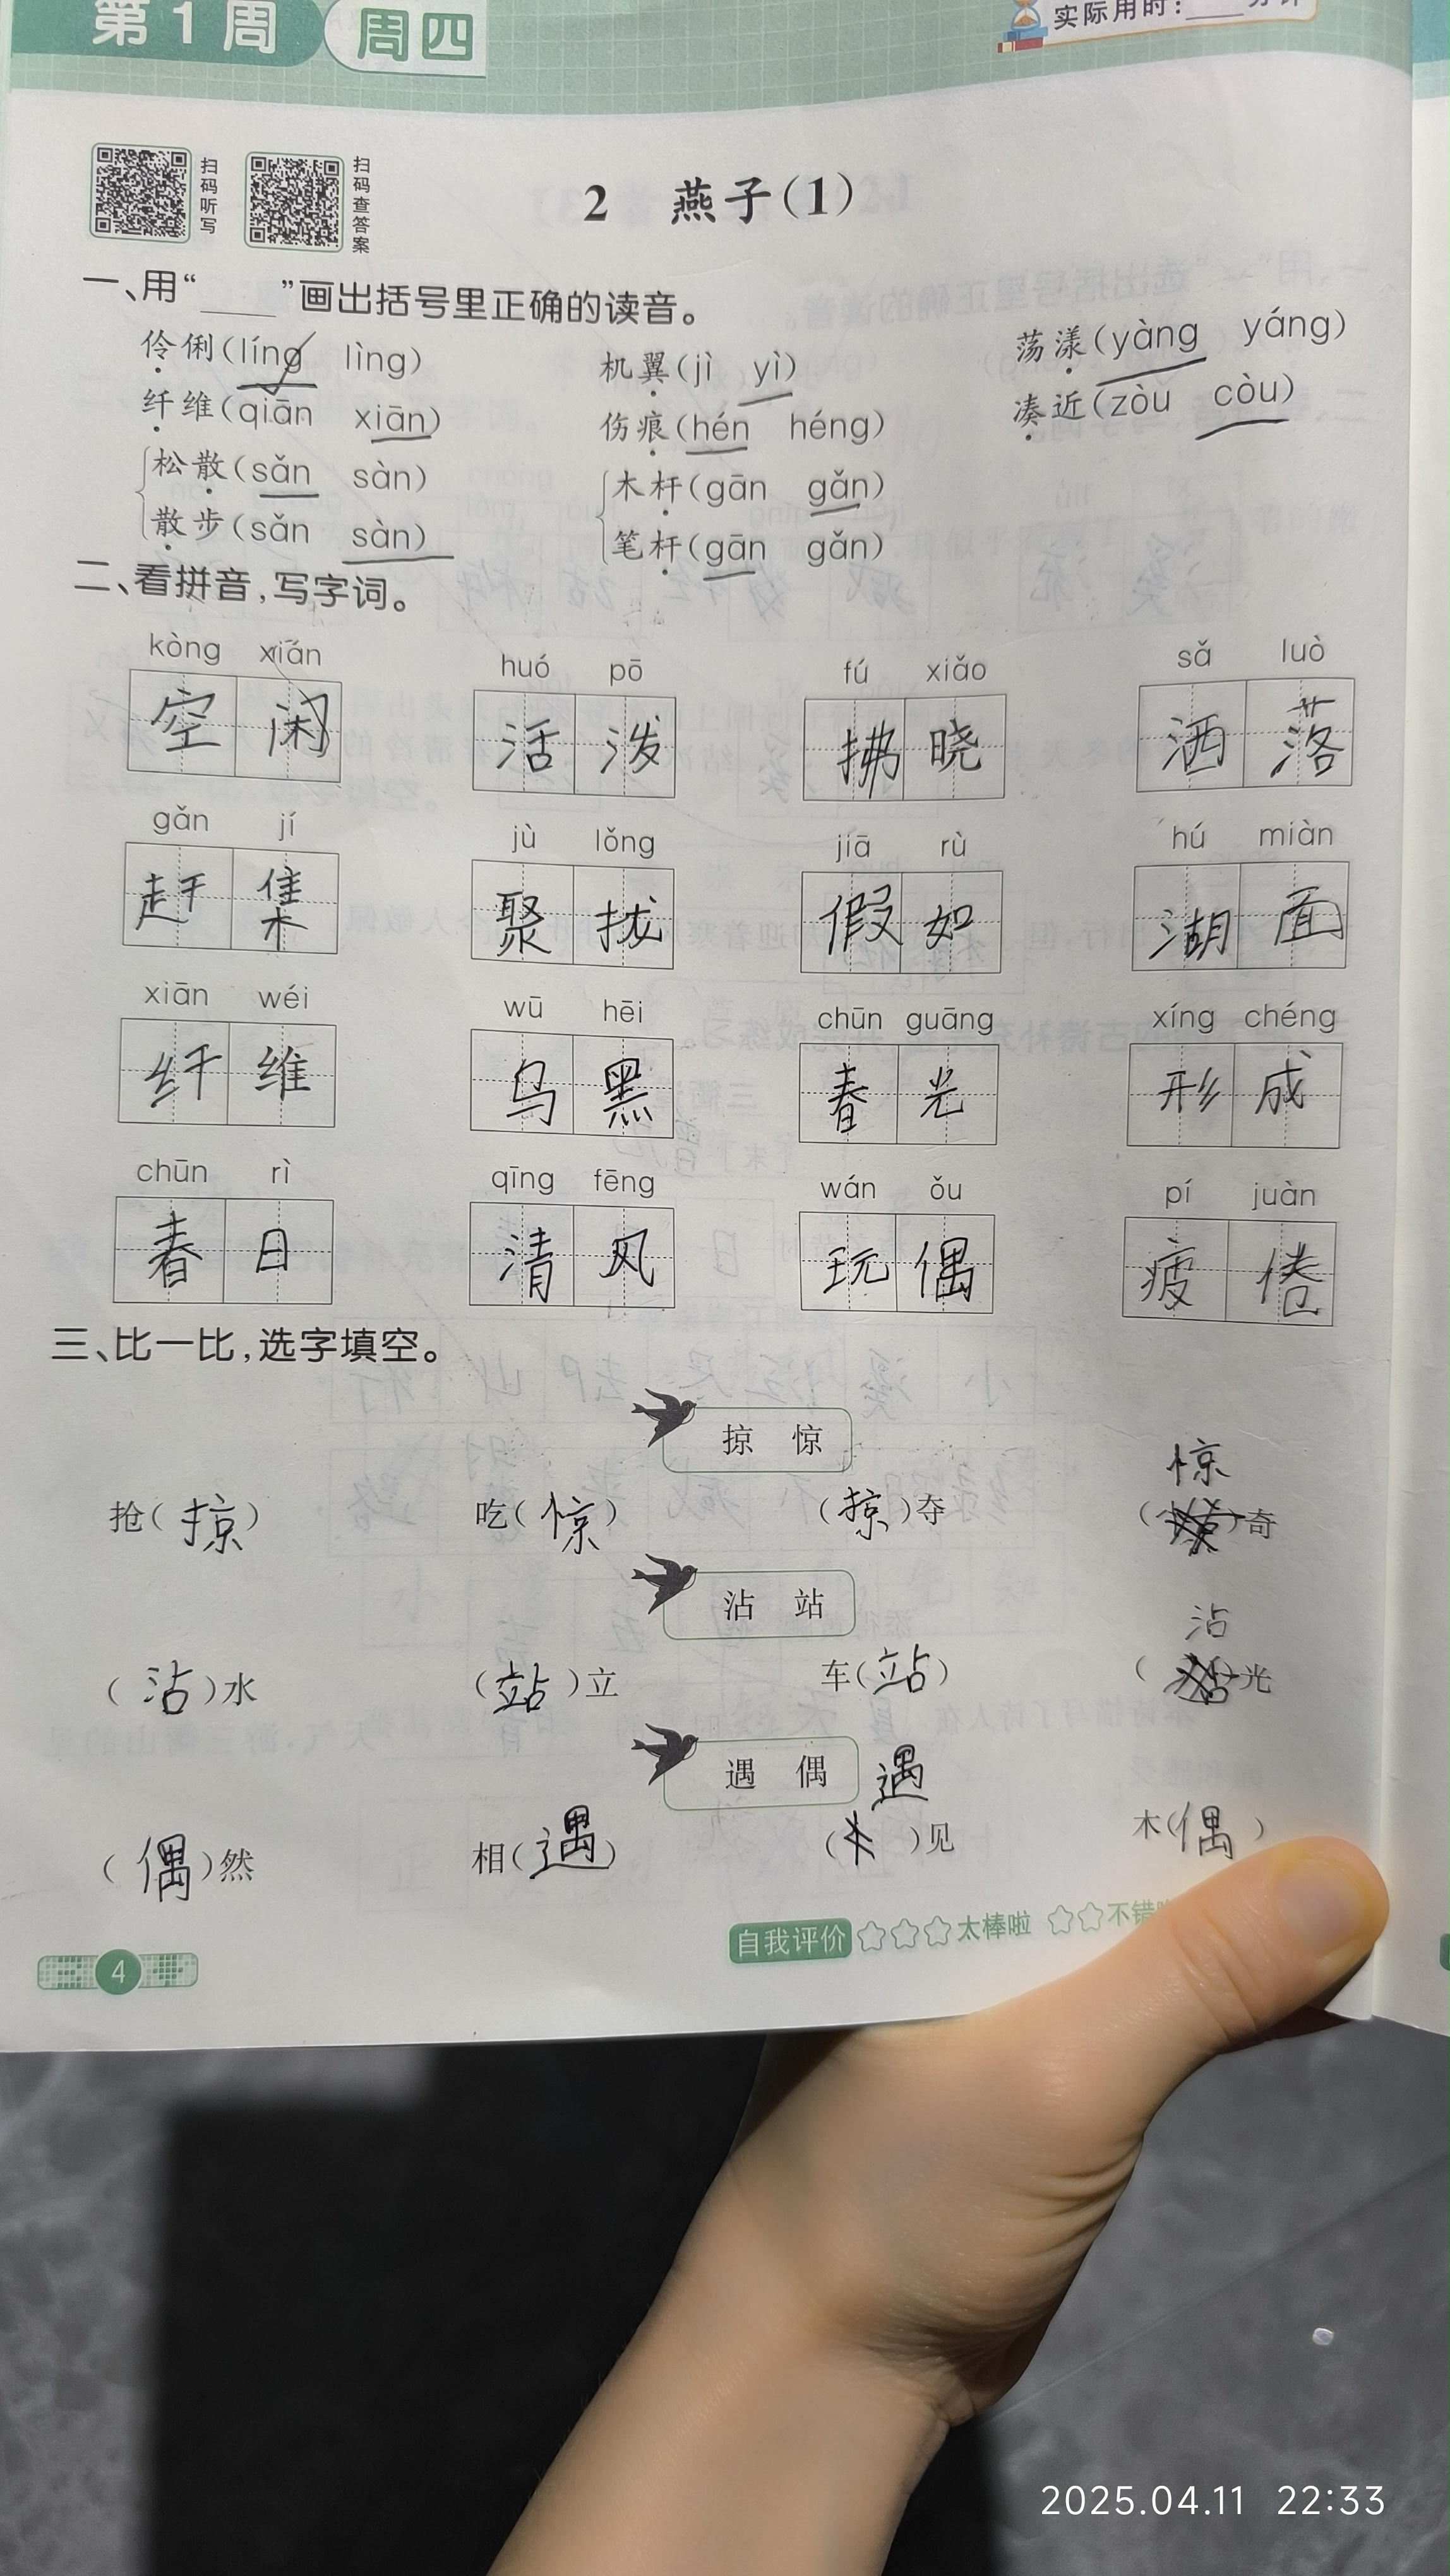 第1周 周四
实际用时：____分钟
扫码听写 扫码查答案
2 燕子(1)
一、用“____”画出括号里正确的读音。
伶俐(líng lìng) 机翼(jì yì) 荡漾(yàng yáng)
纤维(qiān xiān) 伤痕(hén héng) 凑近(zòu còu)
松散(sǎn sàn) 木杆(gān gǎn)
散步(sǎn sàn) 笔杆(gān gǎn)
二、看拼音,写字词。
kòng xián huó pō fú xiǎo sǎ luò
空闲 活泼 拂晓 洒落
gǎn jí jù lǒng jiā rù hú miàn
赶集 聚拢 假如 湖面
xiān wéi wū hēi chūn guāng xíng chéng
纤维 乌黑 春光 形成
chūn rì qīng fēng wán ǒu pí juàn
春日 清风 玩偶 疲倦
三、比一比,选字填空。
掠 惊
惊
抢(掠) 吃(惊) (掠)夺 ( )奇
沾 站
沾
(沾)水 (站)立 车(站) ( )光
遇 偶 遇
(偶)然 相(遇) ( )见 木(偶)
自我评价 ☆☆☆太棒啦 ☆☆不错
4
2025.04.11 22:33